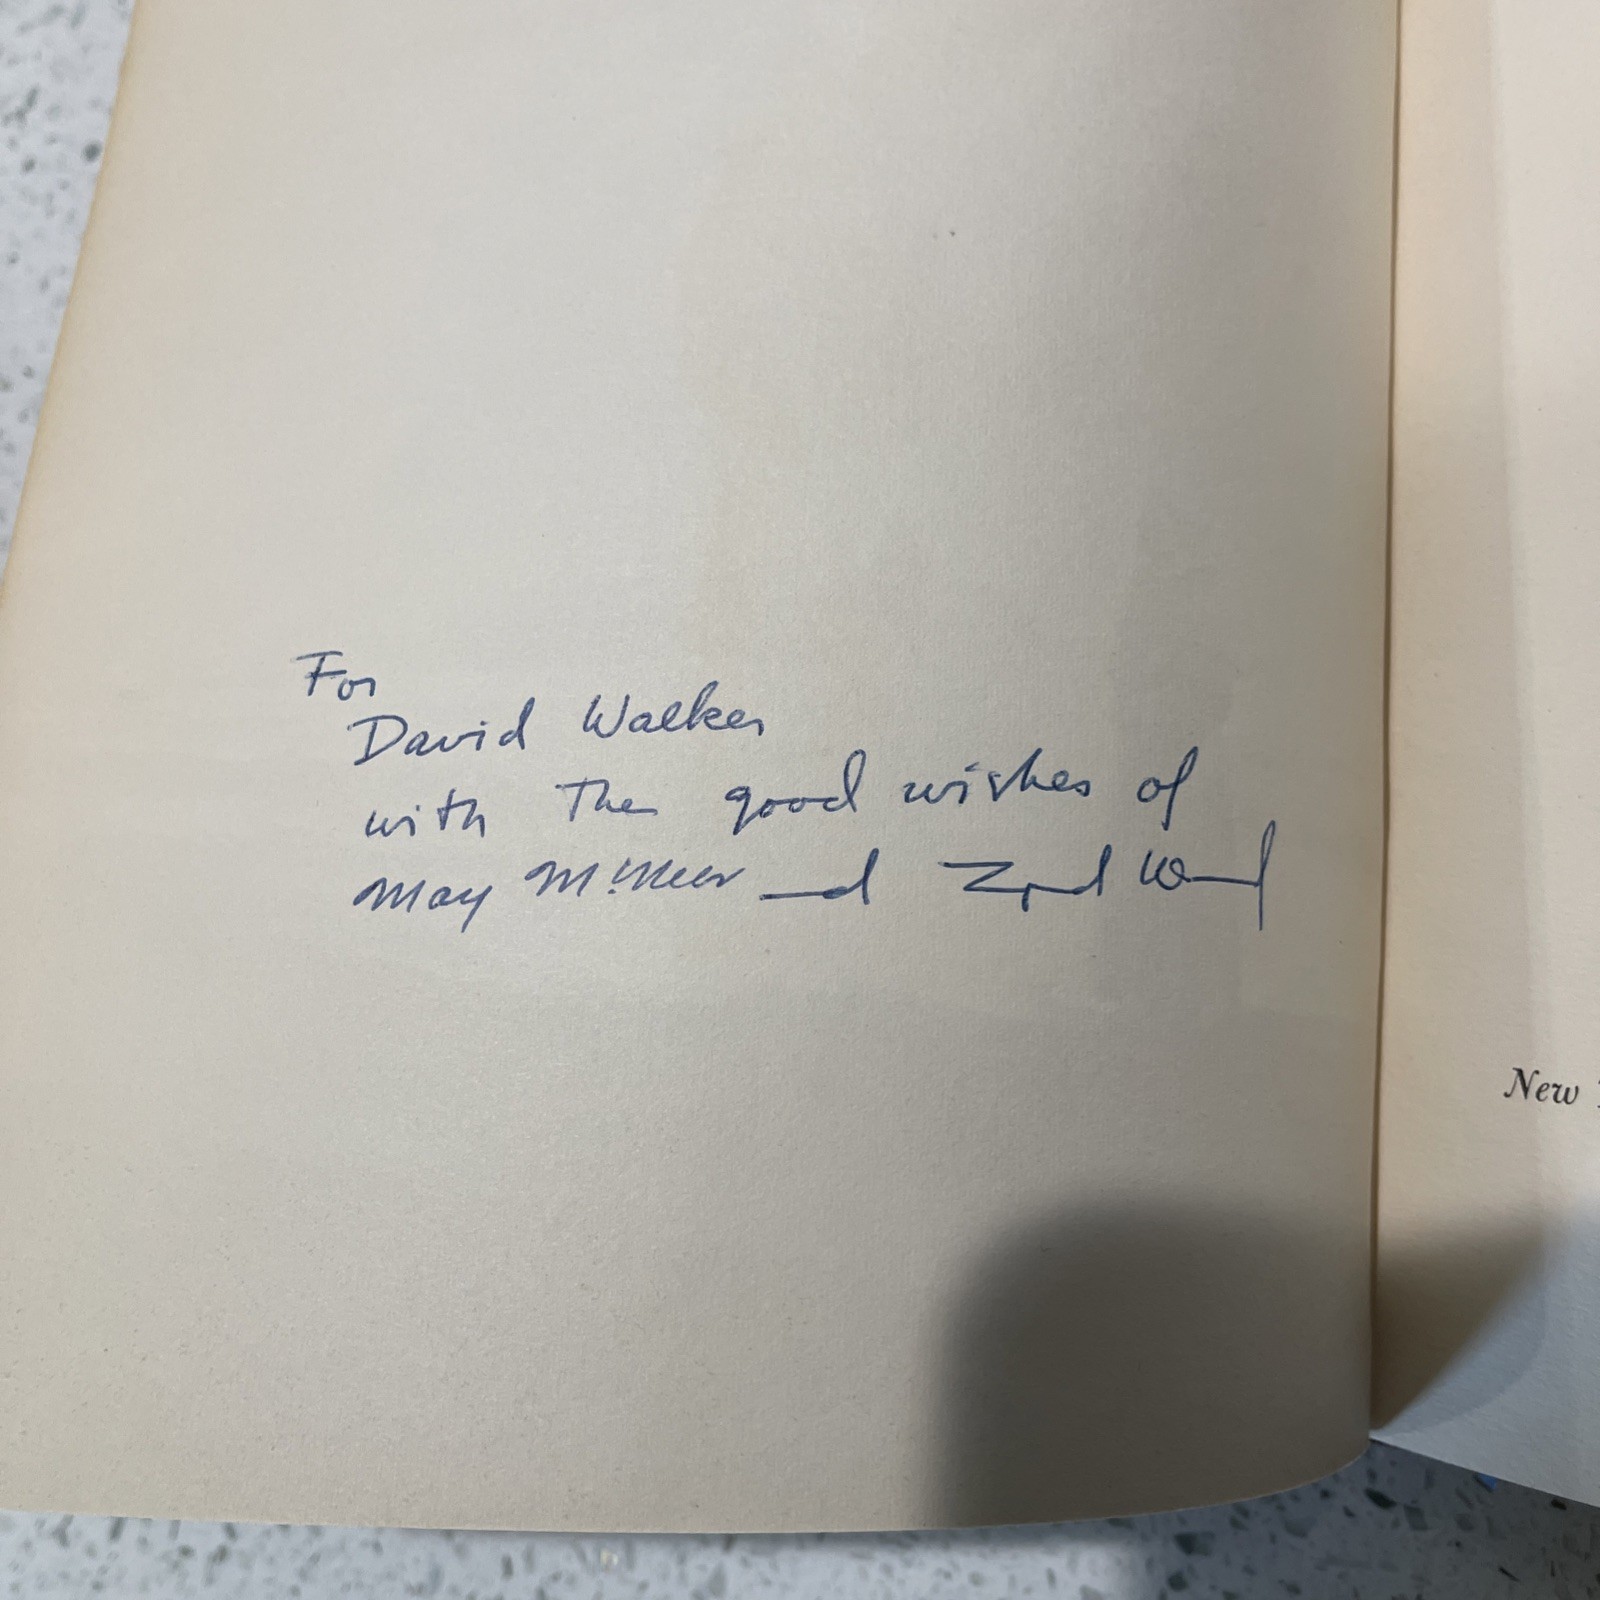 For
David Walker
with the good wishes of
May McNeer and Lynd Ward
New